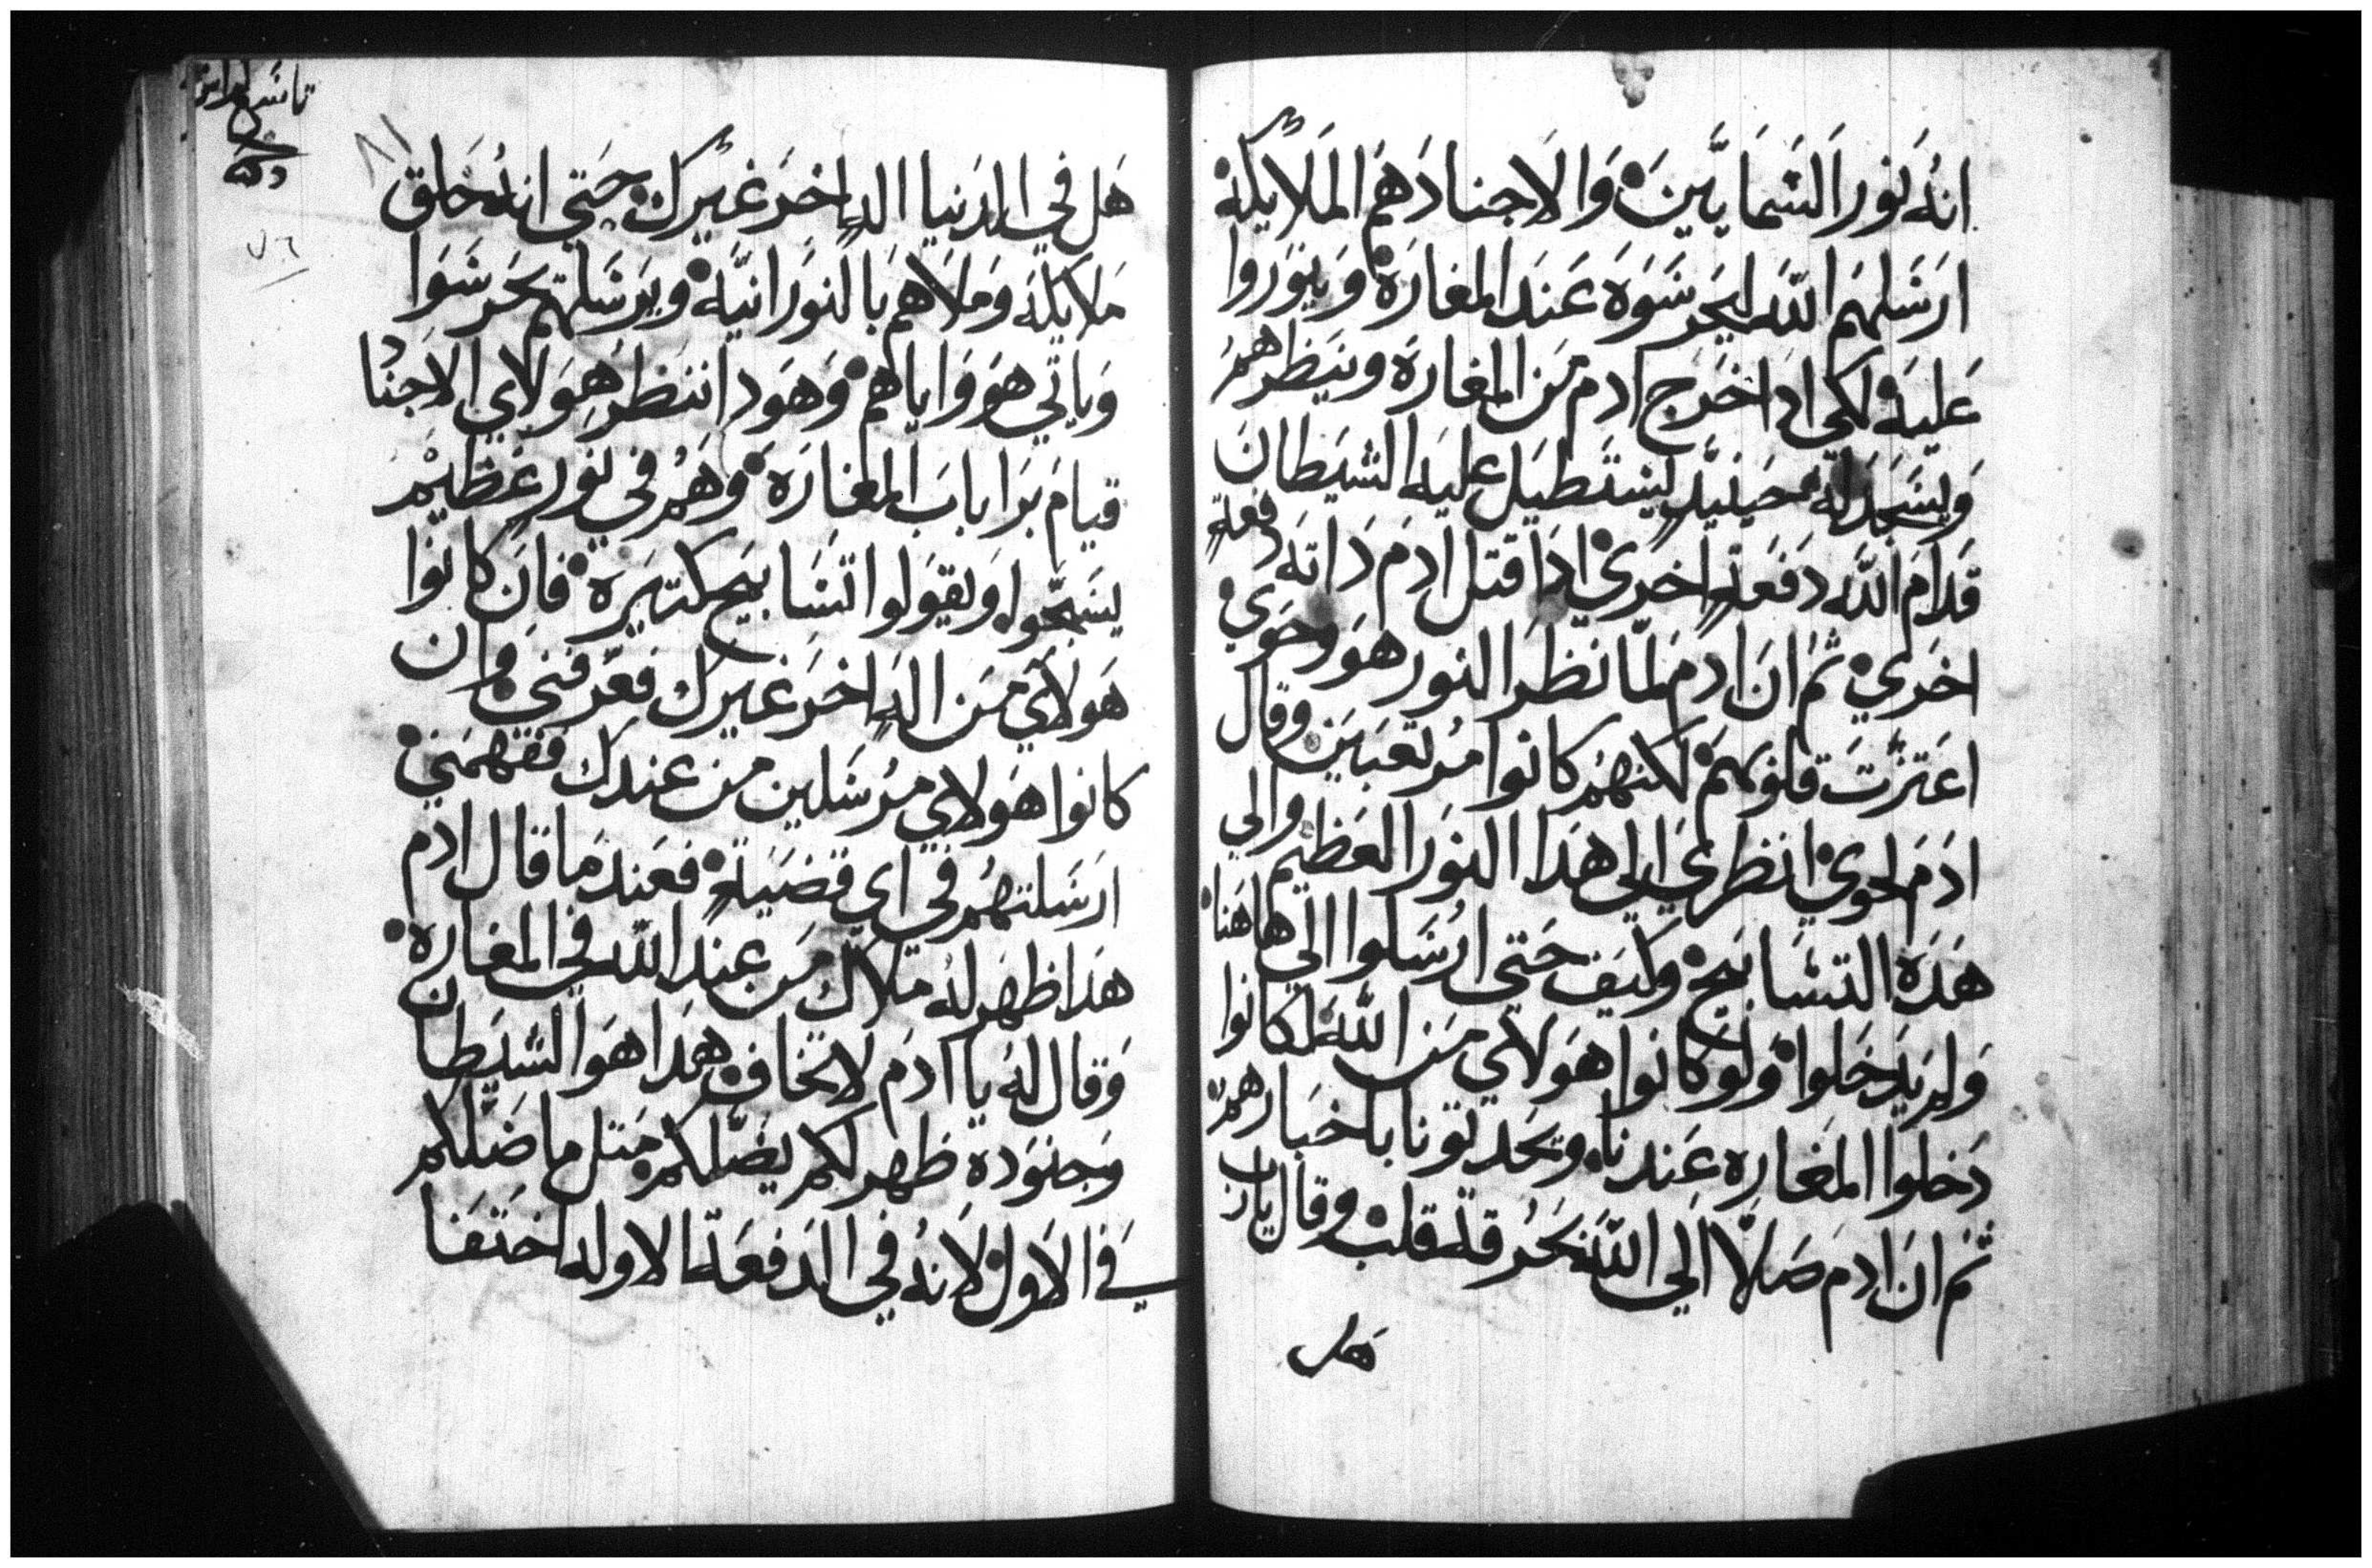 انه نور السمايين والاجناد هم الملايكة
ارسلهم الله ليحرسوه عند المغارة وينوروا
عليه لكي ادا خرج ادم من المغارة وينظرهم
وليسجد له حينيد ليستطيل عليه الشيطان
قدام الله دفعة اخري ادا قتل ادم داته دفعة
اخري ثم ان ادم لما نظر النور هو وحوي
اعتزت قلوبهم لكنهم كانوا مرتعبين وقال
ادم لحوي انظري الي هدا النور العظيم والي
هده التسابيح وكيف حتي ارسلوا الي هاهنا
ولم يدخلوا ولو كانوا هولاي من الله لكانوا
دخلوا المغاره عندنا ويحدتونا باخبارهم
ثم ان ادم صلا الي الله بحرقة قلب وقال يارب
هل
هل في الدنيا اله اخر غيرك حتي انه خلق
ملايكة وملاهم بالنورانية ويرسلهم يحرسوا
وياتي هو واياهم وهودا ننظر هولاي الاجناد
قيام برا باب المغارة وهم في نور عظيم
يسبحوا ويقولوا تسابيح كتيرة فان كانوا
هولاي من اله اخر غيرك فعرفني وان
كانوا هولاي مرسلين من عندك ففهمني
ارسلتهم في اي قضية فعند ما قال ادم
هدا ظهر له ملاك من عند الله في المغارة
وقال له يا ادم لا تخاف هدا هو الشيطان
وجنوده ظهر لكم يضلكم متل ما ضلكم
في الاول لانه في الدفعة الاوله اختفا
٧٦